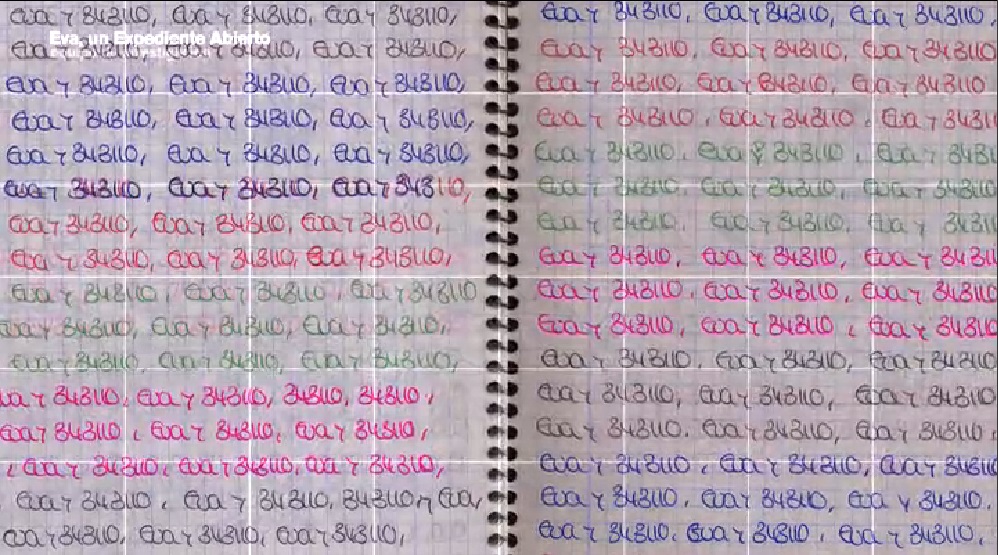 Eva y 343110, Eva y 343110, Eva y 343110,
Eva, un Expediente Abierto
Eva y 343110, Eva y 343110, Eva y 343110,
Eva y 343110, Eva y 343110, Eva y 343110,
Eva y 343110, Eva y 343110, Eva y 343110,
Eva y 343110, Eva y 343110, Eva y 343110,
Eva y 343110, Eva y 343110, Eva y 343110,
Eva y 343110, Eva y 343110, Eva y 343110,
Eva y 343110, Eva y 343110, Eva y 343110,
Eva y 343110, Eva y 343110, Eva y 343110
Eva y 343110, Eva y 343110, Eva y 343110,
Eva y 343110, Eva y 343110, Eva y 343110,
Eva y 343110, Eva y 343110, 343110, 343110,
Eva y 343110, Eva y 343110, Eva y 343110,
, Eva y 343110, Eva y 343110, Eva y 34310,
Eva y 343110, Eva y 343110, 343110, y Eva,
Eva y 343110, Eva y 343110, Eva y 343110,
Eva y 343110, Eva y 343110, Eva y 343110,
Eva y 343110, Eva y 343110, Eva y 343110
Eva y 343110, Eva y 343110, Eva y 343110
Eva y 343110, Eva y 343110, Eva y 34311
Eva y 343110, Eva y 343110, Eva y 3431
Eva y 343110, Eva y 343110, Eva y 343110
Eva y 343110, Eva y 343110, Eva y 34311
Eva y 343110, Eva y 343110, Eva y 34311
Eva y 343110, Eva y 343110, Eva y 343110
Eva y 343110, Eva y 343110, Eva y 343110
Eva y 343110, Eva y 343110, Eva y 343110
Eva y 343110, Eva y 343110, Eva y 343110
Eva y 343110. Eva y 343110, Eva y 343110,
Eva y 343110, Eva y 343110, Eva y 343110
Eva y 343110, Eva y 343110, Eva y 343110.
Eva y 343110. Eva y 343110, Eva y 343110,